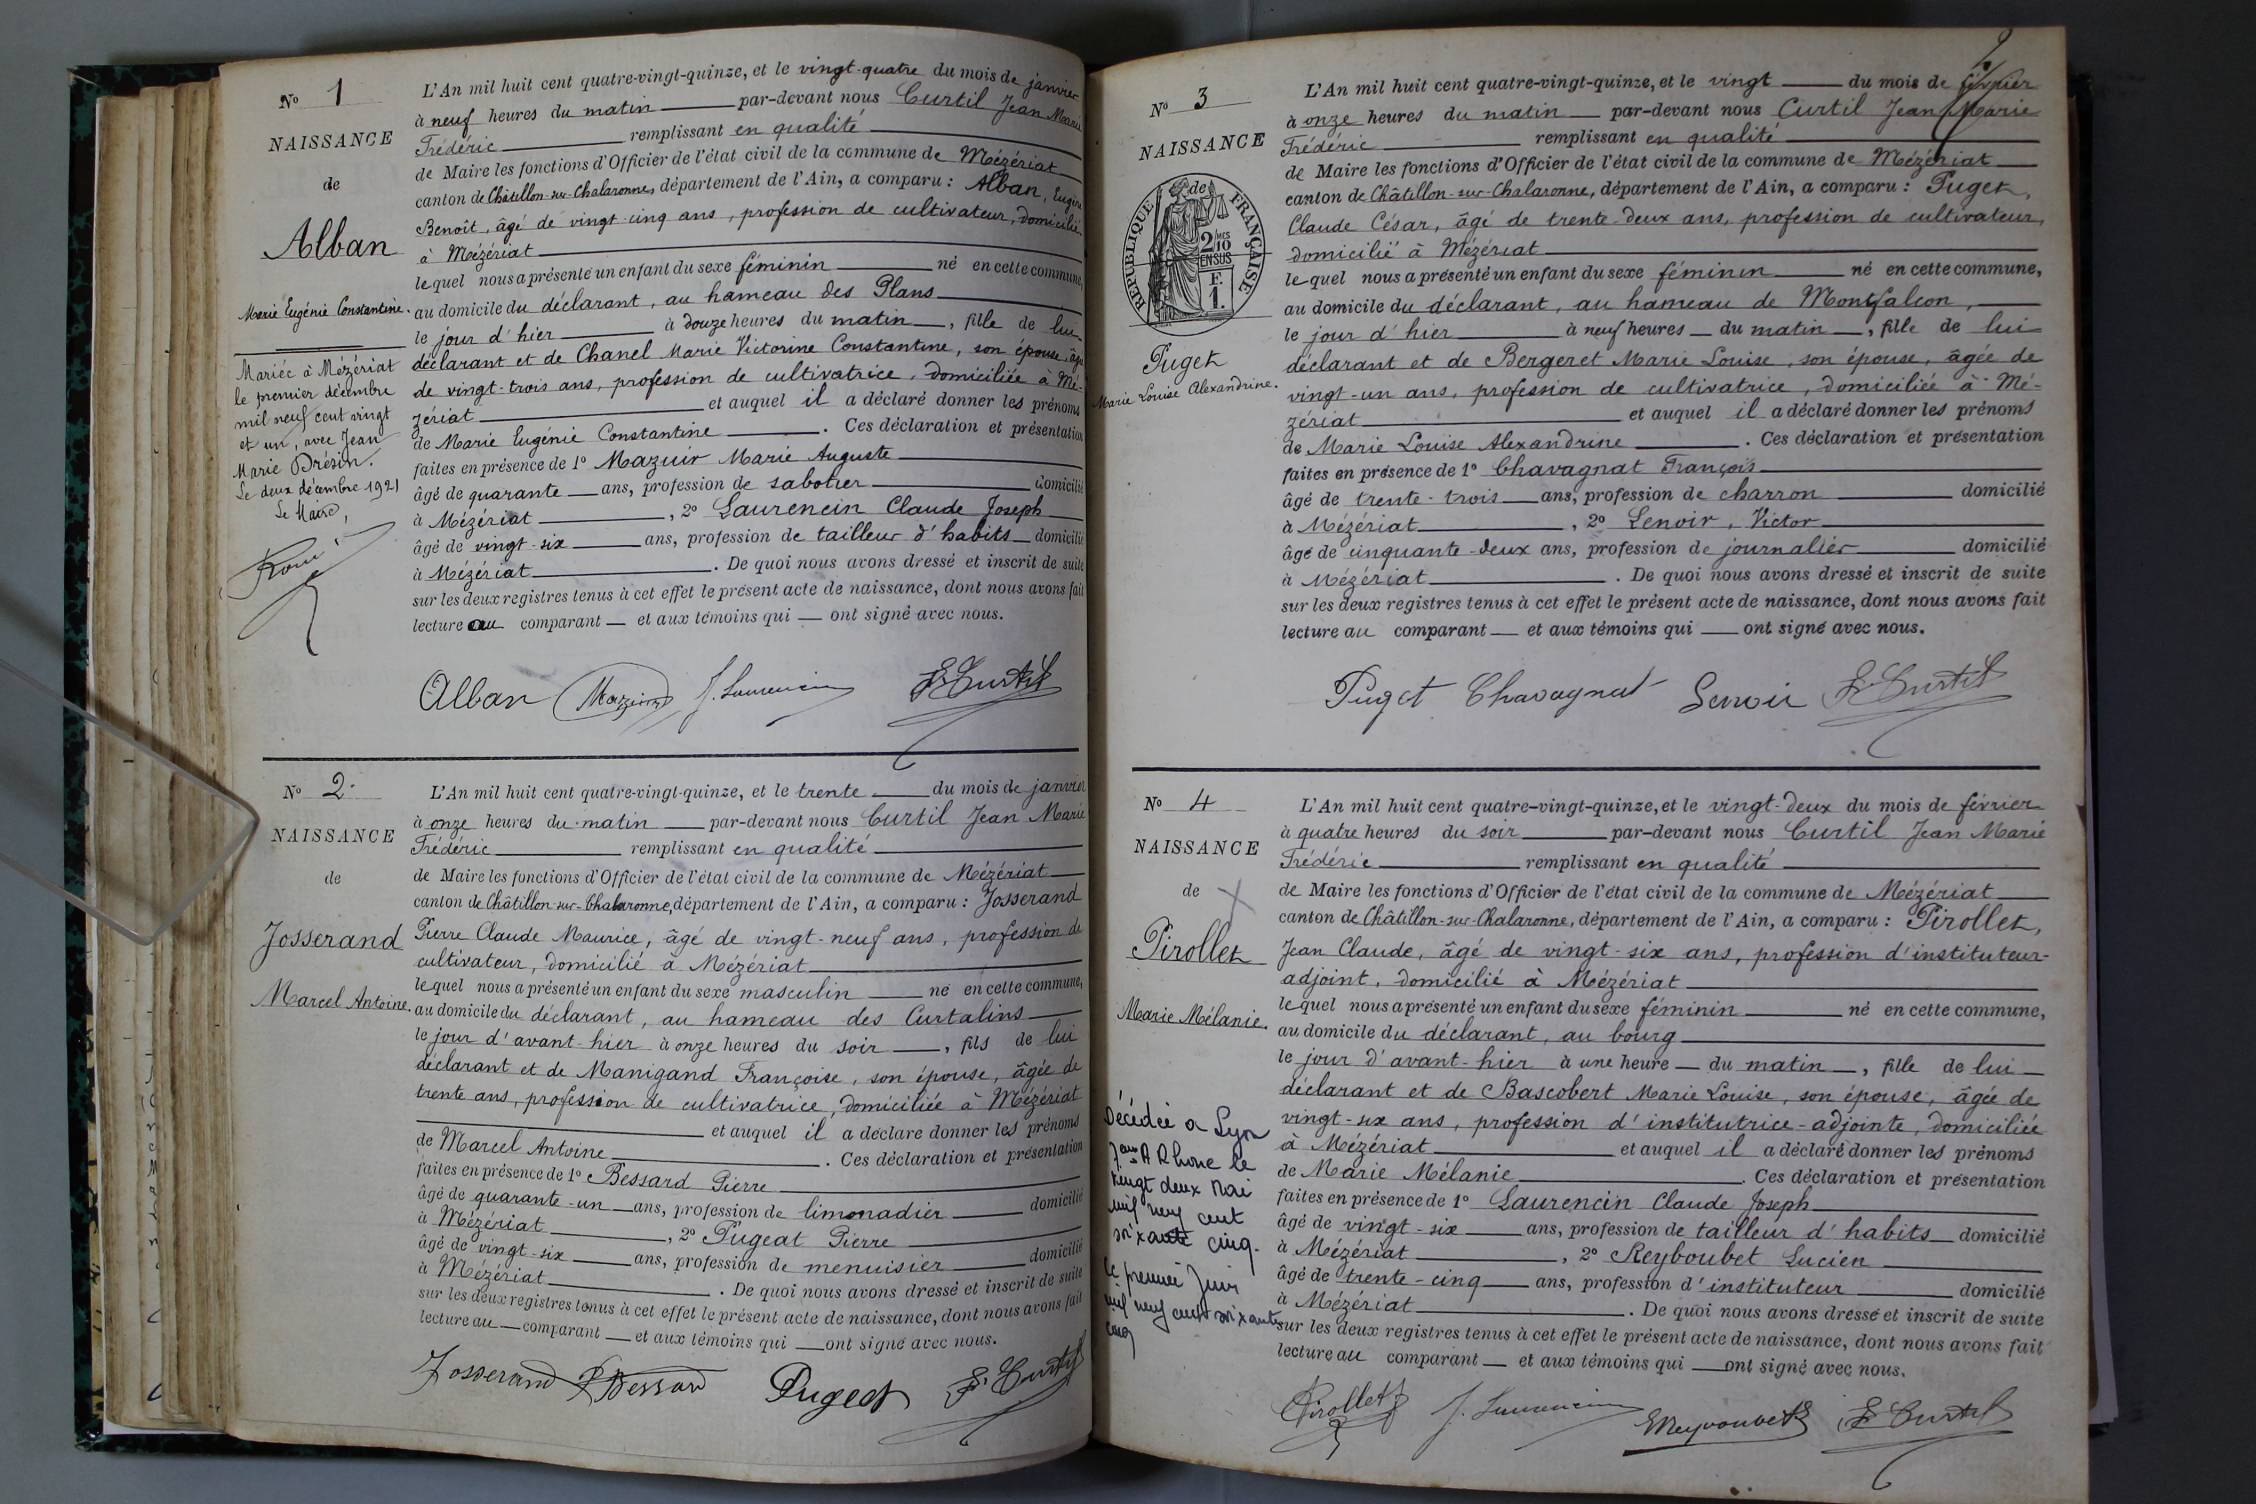 N° 1
NAISSANCE
de
Alban
Marie Eugénie Constantine.
Mariée à Mézériat
le premier décembre
mil neuf cent vingt
et un, avec Jean
Marie Brésin.
Le deux décembre 1921
Le Maire,
L'An mil huit cent quatre-vingt-quinze, et le vingt-quatre du mois de janvier
à neuf heures du matin par-devant nous Curtil Jean Marie
Frédéric remplissant en qualité
de Maire les fonctions d'Officier de l'état civil de la commune de Mézériat
canton de Châtillon-sur-Chalaronne, département de l'Ain, a comparu : Alban, Eugène
Benoît, âgé de vingt-cinq ans, profession de cultivateur, domicilié
à Mézériat
lequel nous a présenté un enfant du sexe féminin né en cette commune,
au domicile du déclarant, au hameau des Plans
le jour d'hier à douze heures du matin, fille de lui
déclarant et de Chanel Marie Victorine Constantine, son épouse, âgée
de vingt-trois ans, profession de cultivatrice, domiciliée à Mé-
zériat et auquel il a déclaré donner les prénoms
de Marie Eugénie Constantine. Ces déclaration et présentation
faites en présence de 1° Mazuir Marie Auguste
âgé de quarante ans, profession de sabotier domicilié
à Mézériat, 2° Laurencin Claude Joseph
âgé de vingt-six ans, profession de tailleur d'habits domicilié
à Mézériat. De quoi nous avons dressé et inscrit de suite
sur les deux registres tenus à cet effet le présent acte de naissance, dont nous avons fait
lecture au comparant et aux témoins qui ont signé avec nous.
Alban Mazuir J. Laurencin F. Curtil
N° 2.
NAISSANCE
de
Josserand
Marcel Antoine.
L'An mil huit cent quatre-vingt-quinze, et le trente du mois de janvier
à onze heures du matin par-devant nous Curtil Jean Marie
Frédéric remplissant en qualité
de Maire les fonctions d'Officier de l'état civil de la commune de Mézériat
canton de Châtillon-sur-Chalaronne, département de l'Ain, a comparu : Josserand
Pierre Claude Maurice, âgé de vingt-neuf ans, profession de
cultivateur, domicilié à Mézériat
lequel nous a présenté un enfant du sexe masculin né en cette commune,
au domicile du déclarant, au hameau des Curtalins
le jour d'avant-hier à onze heures du soir, fils de lui
déclarant et de Manigand Françoise, son épouse, âgée de
trente ans, profession de cultivatrice, domiciliée à Mézériat
et auquel il a déclaré donner les prénoms
de Marcel Antoine. Ces déclaration et présentation
faites en présence de 1° Bessard Pierre
âgé de quarante-un ans, profession de limonadier domicilié
à Mézériat, 2° Pugeat Pierre
âgé de vingt-six ans, profession de menuisier domicilié
à Mézériat. De quoi nous avons dressé et inscrit de suite
sur les deux registres tenus à cet effet le présent acte de naissance, dont nous avons fait
lecture au comparant et aux témoins qui ont signé avec nous.
Josserand P. Bessard Pugeat F. Curtil
N° 3
NAISSANCE
de
RÉPUBLIQUE FRANÇAISE
2/10 MES
EN SUS
F.
1.
Puget
Marie Louise Alexandrine.
L'An mil huit cent quatre-vingt-quinze, et le vingt du mois de février
à onze heures du matin par-devant nous Curtil Jean Marie
Frédéric remplissant en qualité
de Maire les fonctions d'Officier de l'état civil de la commune de Mézériat
canton de Châtillon-sur-Chalaronne, département de l'Ain, a comparu : Puget,
Claude César, âgé de trente-deux ans, profession de cultivateur,
domicilié à Mézériat
lequel nous a présenté un enfant du sexe féminin né en cette commune,
au domicile du déclarant, au hameau de Montfalcon,
le jour d'hier à neuf heures du matin, fille de lui
déclarant et de Bergeret Marie Louise, son épouse, âgée de
vingt-un ans, profession de cultivatrice, domiciliée à Mé-
zériat et auquel il a déclaré donner les prénoms
de Marie Louise Alexandrine. Ces déclaration et présentation
faites en présence de 1° Chavagnat François
âgé de trente-trois ans, profession de charron domicilié
à Mézériat, 2° Lenoir, Victor
âgé de cinquante-deux ans, profession de journalier domicilié
à Mézériat. De quoi nous avons dressé et inscrit de suite
sur les deux registres tenus à cet effet le présent acte de naissance, dont nous avons fait
lecture au comparant et aux témoins qui ont signé avec nous.
Puget Chavagnat Lenoir F. Curtil
N° 4
NAISSANCE
de
Pirollet
Marie Mélanie.
Décédée à Lyon
7eme A Rhône le
vingt deux Mai
mil neuf cent
soixante cinq.
Le premier Juin
mil neuf cent soixante
cinq
L'An mil huit cent quatre-vingt-quinze, et le vingt-deux du mois de février
à quatre heures du soir par-devant nous Curtil Jean Marie
Frédéric remplissant en qualité
de Maire les fonctions d'Officier de l'état civil de la commune de Mézériat
canton de Châtillon-sur-Chalaronne, département de l'Ain, a comparu : Pirollet,
Jean Claude, âgé de vingt-six ans, profession d'instituteur-
adjoint, domicilié à Mézériat
lequel nous a présenté un enfant du sexe féminin né en cette commune,
au domicile du déclarant, au bourg
le jour d'avant-hier à une heure du matin, fille de lui
déclarant et de Bascobert Marie Louise, son épouse, âgée de
vingt-six ans, profession d'institutrice-adjointe, domiciliée
à Mézériat et auquel il a déclaré donner les prénoms
de Marie Mélanie. Ces déclaration et présentation
faites en présence de 1° Laurencin Claude Joseph
âgé de vingt-six ans, profession de tailleur d'habits domicilié
à Mézériat, 2° Reyboubet Lucien
âgé de trente-cinq ans, profession d'instituteur domicilié
à Mézériat. De quoi nous avons dressé et inscrit de suite
sur les deux registres tenus à cet effet le présent acte de naissance, dont nous avons fait
lecture au comparant et aux témoins qui ont signé avec nous.
Pirollet J. Laurencin Reyvoubet F. Curtil